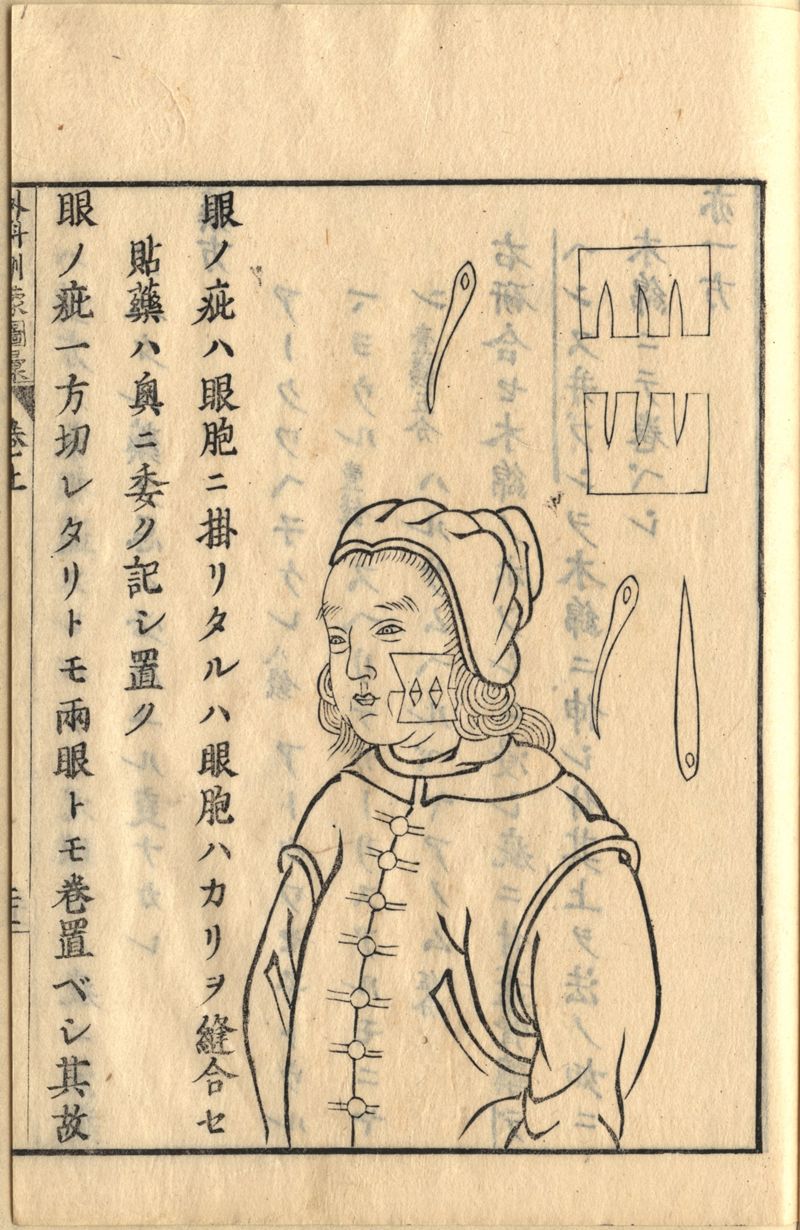 眼ノ疵ハ眼胞ニ掛リタルハ眼胞ハカリヲ縫合セ
貼藥ハ奥ニ委ク記シ置ク
眼ノ疵一方切レタリトモ兩眼トモ巻置ベシ其故